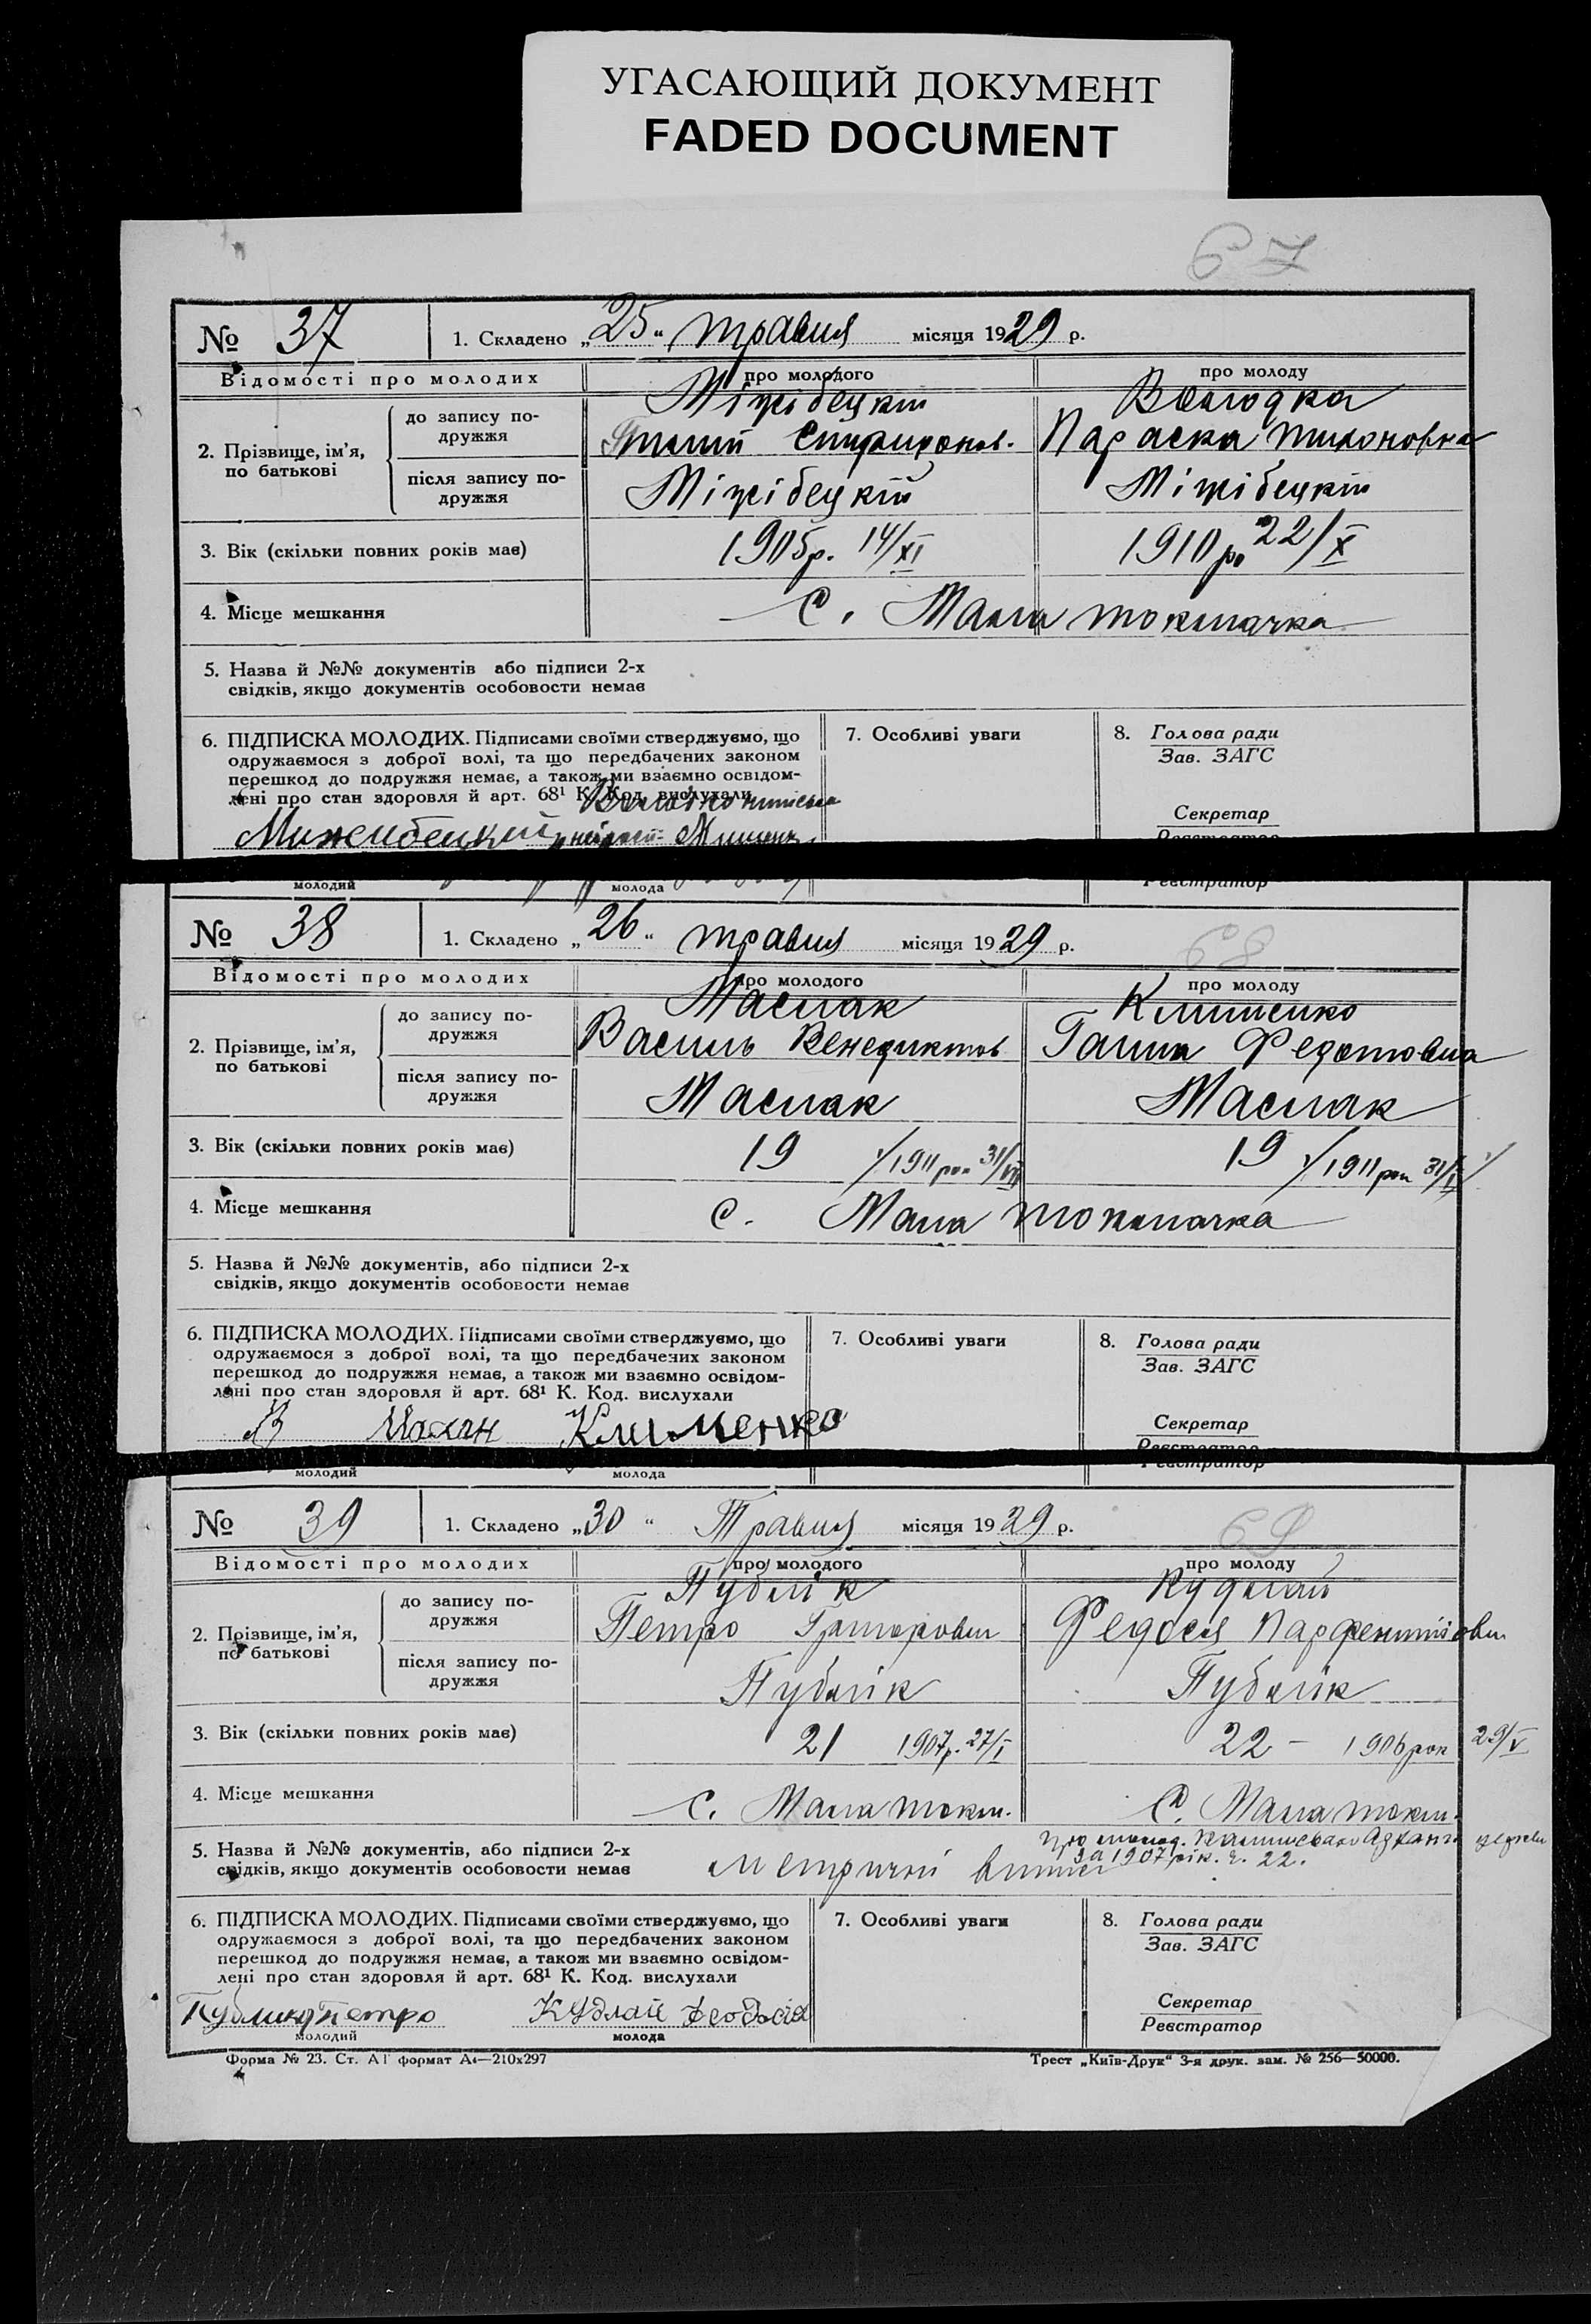 УГАСАЮЩИЙ ДОКУМЕНТ
FADED DOCUMENT
67
№ 37 1. Складено „25“ травня місяця 1929 р.
Відомості про молодих про молодого про молоду
Міжібецкій Володка
2. Прізвище, ім’я, по батькові
до запису подружжя Спиридонов. Параска Тихоновна
після запису подружжя Міжібецкій Міжібецкій
3. Вік (скільки повних років має) 1905р. 14/XI 1910р. 22/X
4. Місце мешкання С. Мала Токмачка
5. Назва й №№ документів або підписи 2-х
свідків, якщо документів особовости немає
6. ПІДПИСКА МОЛОДИХ. Підписами своїми стверджуємо, що
одружаємося з доброї волі, та що передбачених законом
перешкод до подружжя немає, а також ми взаємно освідом-
лені про стан здоровля й арт. 68¹ К. Код. вислухали
Мижибецкий
7. Особливі уваги
8. Голова ради
Зав. ЗАГС
Секретар
Реєстратор
молодий молода
№ 38 1. Складено „26“ травня місяця 1929 р.
68
Відомості про молодих про молодого про молоду
Маслак Клименко
2. Прізвище, ім’я, по батькові
до запису подружжя Василь Венедиктов Ганна Федотовна
після запису подружжя Маслак Маслак
3. Вік (скільки повних років має) 19 /1911 рок 31/VII 19 /1911 рок 31/
4. Місце мешкання с. Мала Токмачка
5. Назва й №№ документів, або підписи 2-х
свідків, якщо документів особовости немає
6. ПІДПИСКА МОЛОДИХ. Підписами своїми стверджуємо, що
одружаємося з доброї волі, та що передбачених законом
перешкод до подружжя немає, а також ми взаємно освідом-
лені про стан здоровля й арт. 68¹ К. Код. вислухали
В Клименко
7. Особливі уваги
8. Голова ради
Зав. ЗАГС
Секретар
Реєстратор
молодий молода
№ 39 1. Складено „30“ Травня місяця 1929 р.
69
Відомості про молодих про молодого про молоду
Публік Кудлай
2. Прізвище, ім’я, по батькові
до запису подружжя Петро Григорович Федося Парфентіївн
після запису подружжя Публік Публік
3. Вік (скільки повних років має) 21 1907р. 27/I 22 – 1906 рок 29/V
4. Місце мешкання С. Мала Токм. С. Мала Токм.
5. Назва й №№ документів, або підписи 2-х
свідків, якщо документів особовости немає
Метричні виписі
за 1907 рік. ч. 22.
6. ПІДПИСКА МОЛОДИХ. Підписами своїми стверджуємо, що
одружаємося з доброї волі, та що передбачених законом
перешкод до подружжя немає, а також ми взаємно освідом-
лені про стан здоровля й арт. 68¹ К. Код. вислухали
Публик Петро Кудлай Феодосія
молодий молода
7. Особливі уваги
8. Голова ради
Зав. ЗАГС
Секретар
Реєстратор
Форма № 23. Ст. АГ формат А4—210х297
Трест „Київ-Друк“ 3-я друк. зам. № 256—50000.